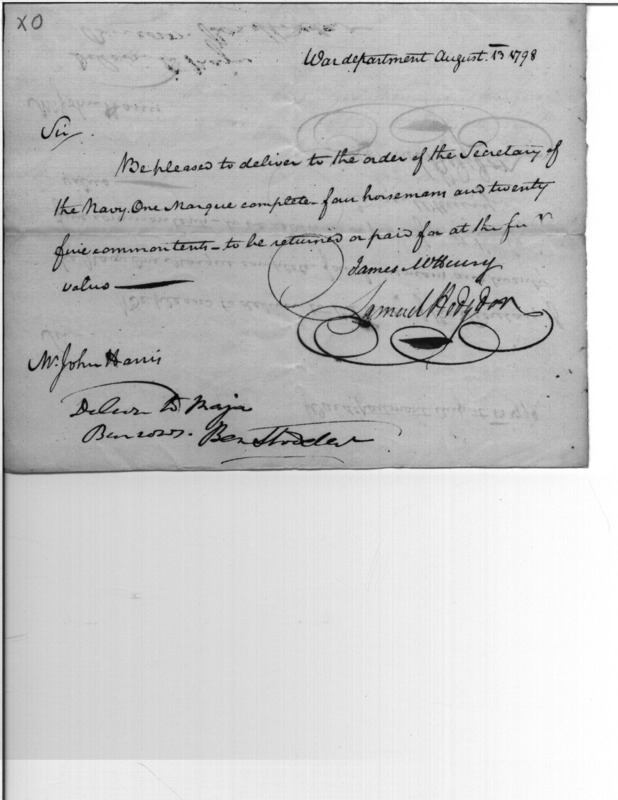 XO
War department August. 13 1798
Sir
Be pleased to deliver to the order of the Secretary of
the Navy. One Marque complete - four horsemans and twenty
five common tents - to be returned or paid for at the full
value
James McHenry
Samuel Hodgdon
Mr. John Harris
Deliver to Major
Burrows. Ben Stoddert